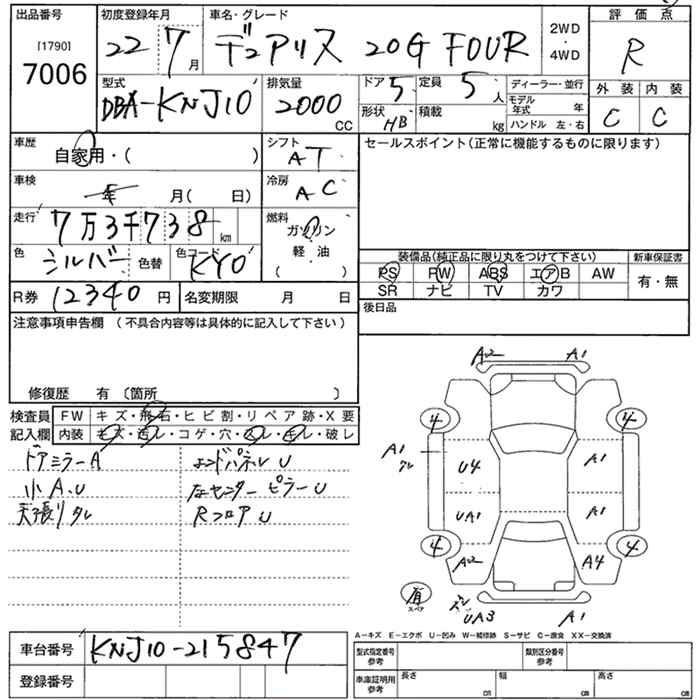 出品番号 初度登録年月 車名・グレード 2WD・4WD 評価点
[1790] 7006 22 7月 デュアリス 20G FOUR R
型式 DBA-KNJ10 排気量 2000 CC ドア 5 定員 5人 ディーラー・並行 外装 内装
形状 HB 積載 kg モデル年式 年 ハンドル 左・右 C C
車歴 自家用・( ) シフト AT セールスポイント(正常に機能するものに限ります)
車検 年 月( 日) 冷房 AC
走行 7万3千738 km 燃料 ガソリン 軽・油 ( )
色 シルバー 色替 色コード KY0
装備品(純正品に限り丸をつけて下さい) 新車保証書
PS PW ABS エアB AW 有・無
SR ナビ TV カワ
R券 12340円 名変期限 月 日 後日品
注意事項申告欄 (不具合内容等は具体的に記入して下さい)
修復歴 有 〔箇所 〕
検査員記入欄 FW キズ・飛石・ヒビ割・リペア跡・X要
内装 キズ・汚レ・コゲ・穴・スレ・キレ・破レ
ドアミラーA エンドパネルU
小A.U 左センターピラーU
天張りタレ RフロアU
A2 A1
4 4
A1 U4 A1
UA1 A1
4 A2 A4 4
有 スペア UA3 A1
A-キズ E-エクボ U-凹み W-補修跡 S-サビ C-腐食 XX-交換済
車台番号 KNJ10-215847 型式指定番号 参考 類別区分番号 参考
登録番号 車庫証明用 参考 長さ cm 幅 cm 高さ cm